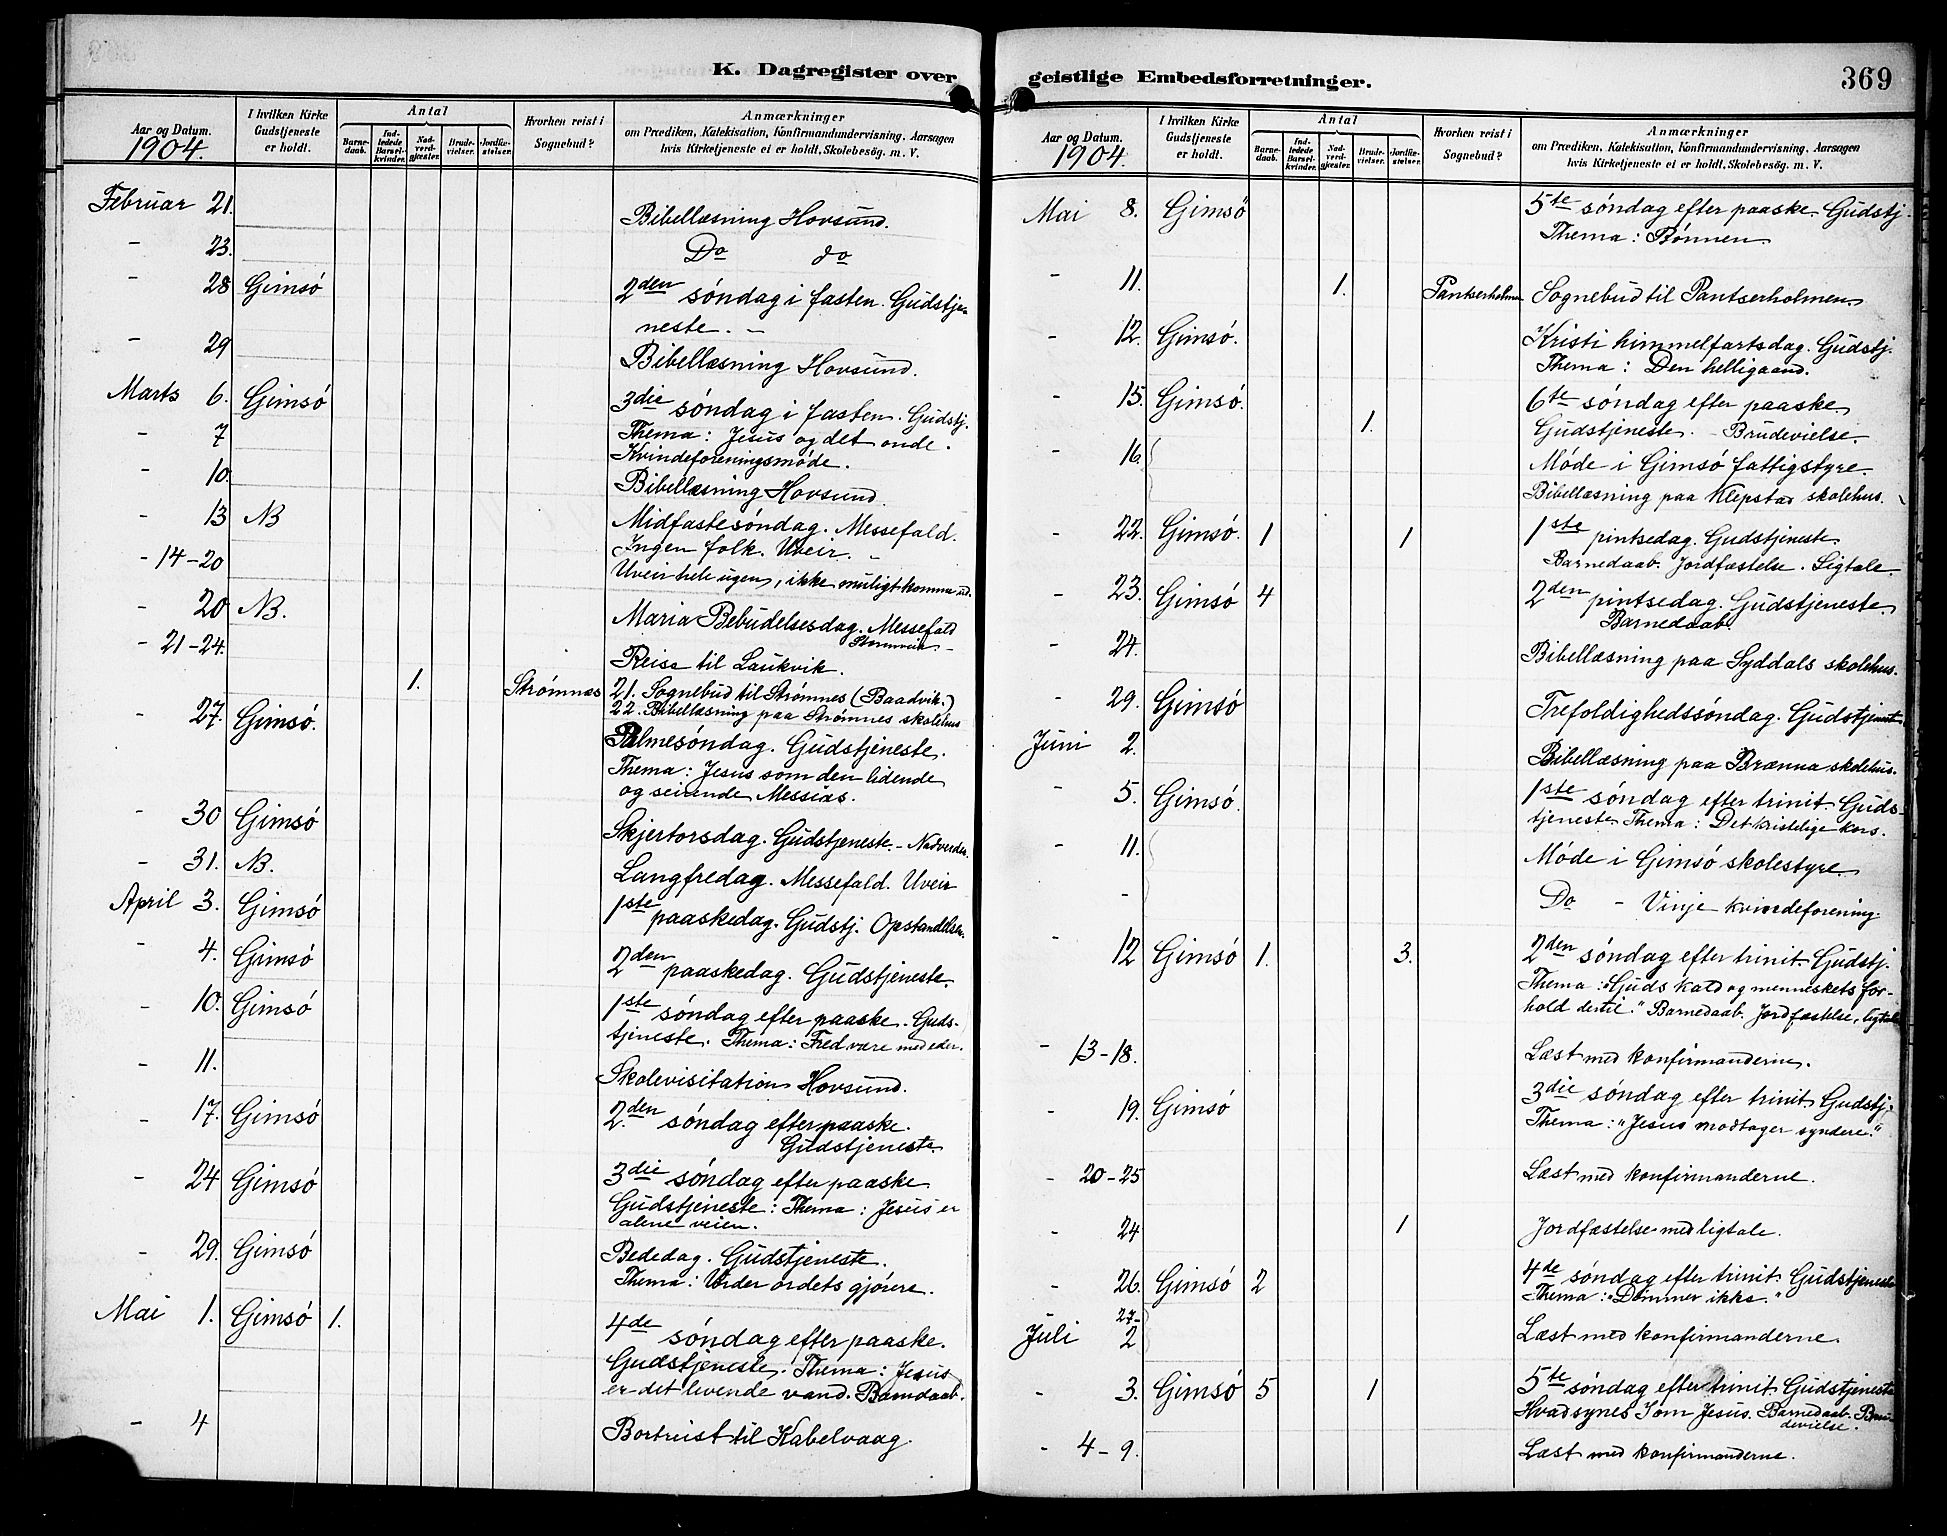 K. Dagregister over
Aar og Datum.
1904.
I hvilken Kirke
Gudstjeneste
er holdt.
Antal
Barne-
daab.
Ind-
ledede
Barsel-
kvinder.
Nad-
verd-
gjester.
Brude-
vielser.
Jordfæ-
stelser.
Hvorhen reist i
Sognebud?
Anmærkninger
om Prædiken, Katekisation, Konfirmandundervisning. Aarsagen
hvis Kirketjeneste ei er holdt, Skolebesög. m. V.
Februar 21. Bibellæsning Hovsund.
- 23. Do do
- 28 Gimsó 2den sóndag i fasten. Gudstje-
neste. -
- 29 Bibellæsning Hovsund.
Marts 6. Gimsó 3die sóndag i fasten. Gudstj.
Thema: Jesus og det onde.
- 7 Kvindeforeningsmóde.
- 10. Bibellæsning Hovsund.
- 13 NB Midfastesóndag. Messefald.
Ingen folk. Uveir. -
- 14-20 Uveir hele ugen, ikke muligt komme ud.
- 20 NB. Maria Bebudelsesdag. Messefald
- 21-24. Reise til Laukvik.
1. Strømnæs 21. Sognebud til Strømnes (Baadvik.)
22. Bibellæsning paa Strømnes skolehus
- 27. Gimsó. Palmesóndag. Gudstjeneste.
Thema: Jesus som den lidende
og seirende Messias.
- 30 Gimsó Skjertorsdag. Gudstjeneste. - Nadverden.
- 31. NB. Langfredag. Messefald. Uveir
April 3. Gimsó 1ste paaskedag. Gudstj. Opstandelsen.
- 4. Gimsó 2den paaskedag. Gudstjeneste.
- 10. Gimsó 1ste sóndag efter paaske. Guds-
tjeneste. Thema: Fred være med eder.
- 11. Skolevisitation Hovsund.
- 17. Gimsó 2den sóndag efter paaske.
Gudstjeneste.
- 24 Gimsó 3die sóndag efter paaske
Gudstjeneste: Thema: Jesus er
alene veien.
- 29. Gimsó Bededag. Gudstjeneste.
Thema: Vorder ordets gjórere.
Mai 1. Gimsó 1. 4de sóndag efter paaske.
Gudstjeneste. Thema: Jesus
er det levende vand. Barnedaab.
- 4 Bortreist til Kabelvaag.
geistlige Embedsforretninger.
369
Aar og Datum.
1904.
I hvilken Kirke
Gudstjeneste
er holdt.
Antal
Barne-
daab.
Ind-
ledede
Barsel-
kvinder.
Nad-
verd-
gjester.
Brude-
vielser.
Jordfæ-
stelser.
Hvorhen reist i
Sognebud?
Anmærkninger
om Prædiken, Katekisation, Konfirmandundervisning. Aarsagen
hvis Kirketjeneste ei er holdt, Skolebesög. m. V.
Mai 8. Gimsö 5te sóndag efter paaske. Gudstj.
Thema: Bønnen
- 11. 1. Pantserholmen Sognebud til Pantserholmen.
- 12. Gimsó. Kristi himmelfartsdag. Gudstj.
Thema: Den helligaand.
- 15. Gimsó. 6te sóndag efter paaske.
1. Gudstjeneste. - Brudevielse.
- 16. Móde i Gimsó fattigstyre.
Bibellæsning paa Klepstad skolehus.
- 22. Gimsó. 1 1 1ste pintsedag. Gudstjeneste.
Barnedaab. Jordfæstelse. Ligtale.
- 23. Gimsó 4 2den pintsedag. Gudstjeneste.
Barnedaab.
- 24. Bibellæsning paa Syddals skolehus.
- 29. Gimsó Trefoldighedssóndag. Gudstjeneste
Juni 2. Bibellæsning paa Brænna skolehus.
- 5. Gimsó. 1ste sóndag efter trinit. Guds-
tjeneste. Thema: Det kristelige kors.
- 11. Móde i Gimsó skolestyre.
- Do - Vinje kvindeforening.
- 12 Gimsó 1. 3. 2den sóndag efter trinit. Gudstj.
Thema: "Guds kald og menneskets for-
hold dertil." Barnedaab. Jordfæstelse, ligtale
- 13-18. Læst med konfirmanderne.
- 19. Gimsó 3die sóndag efter trinit. Gudstj.
Thema: "Jesus modtager syndere."
- 20-25 Læst med konfirmanderne.
- 24 1 Jordfæstelse med ligtale.
- 26. Gimsó 2 4de sóndag efter trinit. Gudstjeneste
Thema: "Dømmer ikke."
27-
Juli 2 Læst med konfirmanderne.
- 3. Gimsó 5 1 5te sóndag efter trinit. Gudstjeneste
Hvad synes I om Jesus. Barnedaab. Bru-
devielse.
- 4-9. Læst med konfirmanderne.